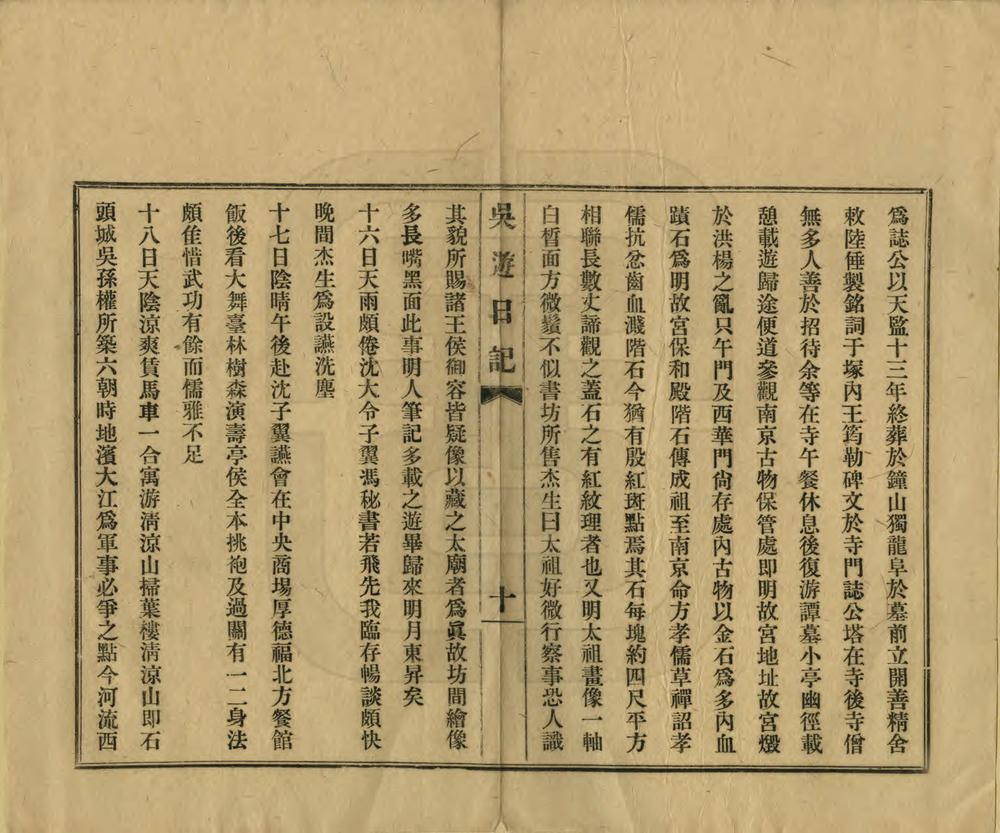 爲誌公以天監十三年終葬於鐘山獨龍阜於墓前立開善精舍
敕陸倕製銘詞于塚內王筠勒碑文於寺門誌公塔在寺後寺僧
無多人善於招待余等在寺午餐休息後復游譚墓小亭幽徑載
憩載遊歸途便道參觀南京古物保管處即明故宮地址故宮燬
於洪楊之亂只午門及西華門尙存處內古物以金石爲多內血
蹟石爲明故宮保和殿階石傳成祖至南京命方孝儒草禪詔孝
儒抗忿齒血濺階石今猶有殷紅斑點焉其石每塊約四尺平方
相聯長數丈諦觀之蓋石之有紅紋理者也又明太祖畫像一軸
白皙面方微鬚不似書坊所售杰生曰太祖好微行察事恐人識
吳遊日記
十
其貌所賜諸王侯御容皆疑像以藏之太廟者爲眞故坊間繪像
多長嘴黑面此事明人筆記多載之遊畢歸來明月東昇矣
十六日天雨頗倦沈大令子翼馮秘書若飛先我臨存暢談頗快
晚間杰生爲設讌洗塵
十七日陰晴午後赴沈子翼讌會在中央商場厚德福北方餐館
飯後看大舞臺林樹森演壽亭侯全本挑袍及過關有一二身法
頗佳惜武功有餘而儒雅不足
十八日天陰涼爽賃馬車一合寓游淸涼山掃葉樓淸涼山即石
頭城吳孫權所築六朝時地濱大江爲軍事必爭之點今河流西